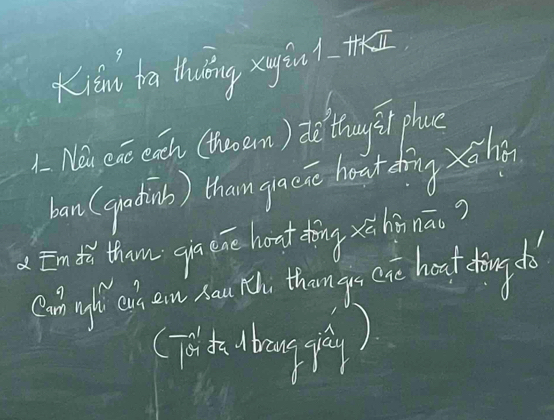 Kiểm tra thường xuyên 1 - HKII.
1- Nêu các cách (theo em) để thuyết phục
bạn (gia đình) tham gia các hoạt động xã hội
2 Em đã tham gia các hoạt động xã hội nào?
Cảm nghĩ của em sau khi tham gia các hoạt động đó
(Tối đa 1 trang giấy).